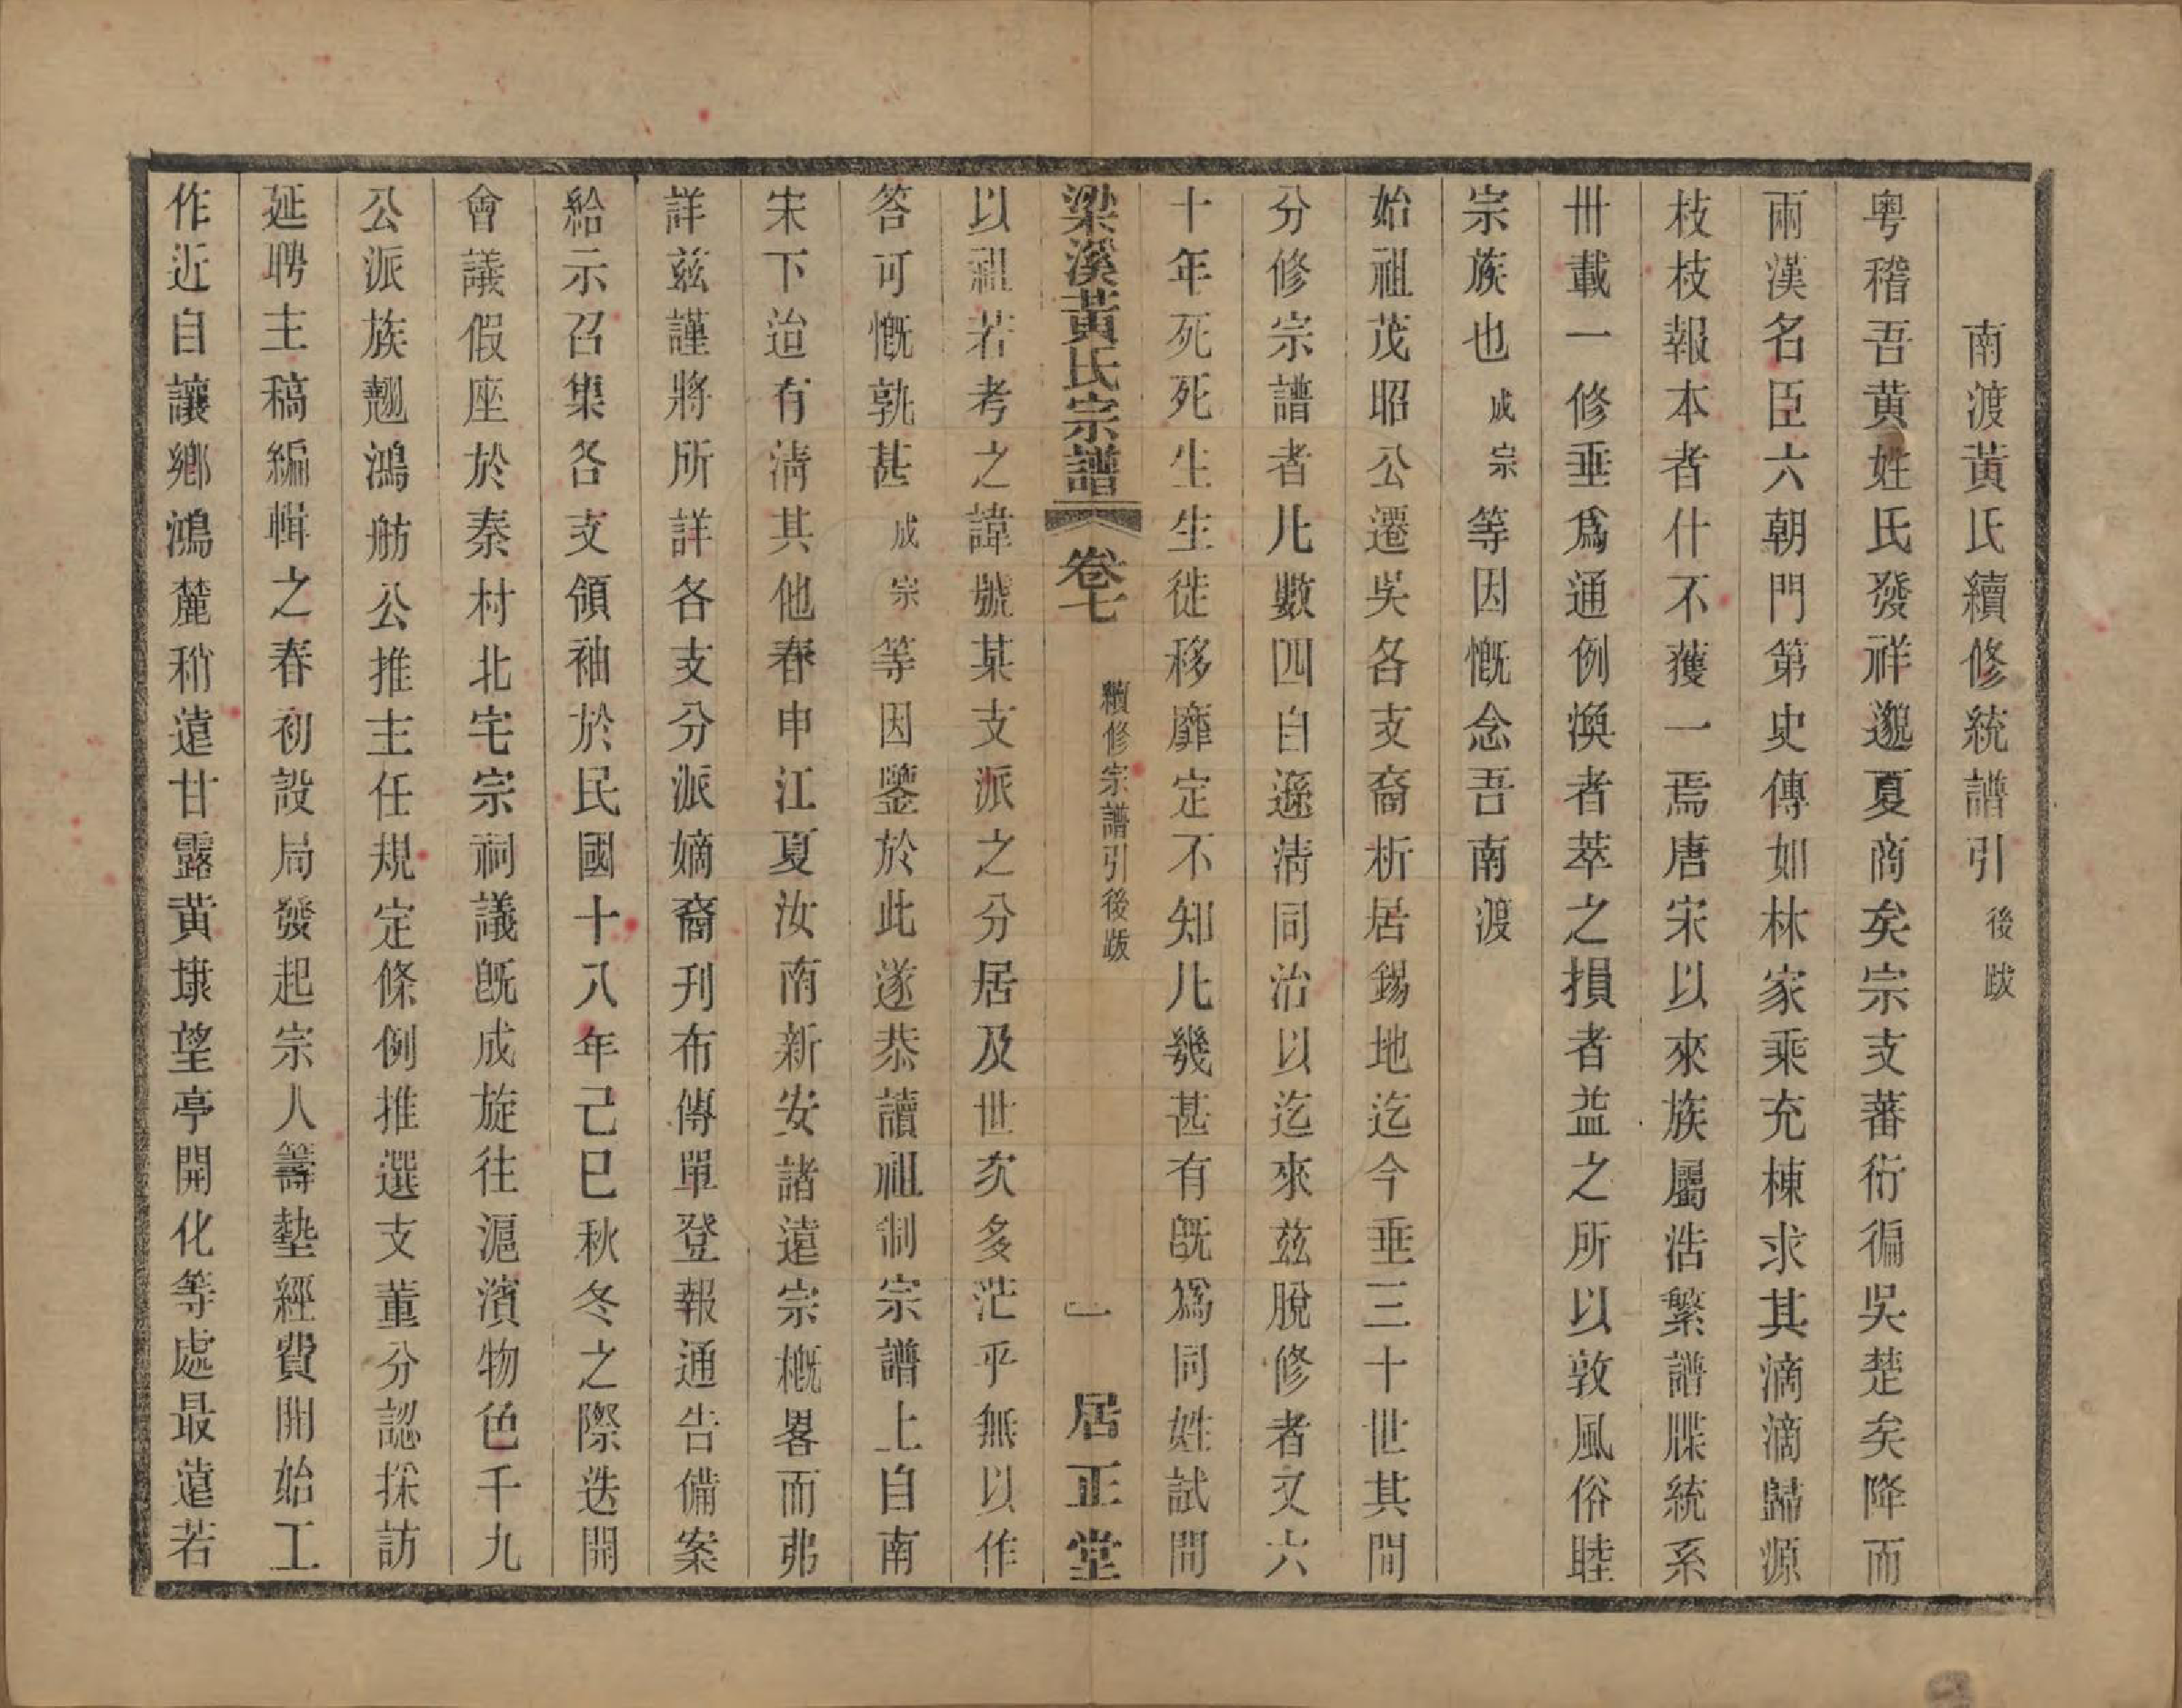 南渡黃氏續修統譜引後跋
粵稽吾黃姓氏發祥邈夏商矣宗支蕃衍徧吳楚矣降而
兩漢名臣六朝門第史傳如林家乘充棟求其滴滴歸源
枝枝報本者什不獲一焉唐宋以來族屬浩繁譜牒統系
卅載一修垂爲通例渙者萃之損者益之所以敦風俗睦
宗族也成宗等因慨念吾南渡
始祖茂昭公遷吳各支裔析居錫地迄今垂三十世其間
分修宗譜者凡數四自遜清同治以迄來茲脫修者又六
十年死死生生徙移靡定不知凡幾甚有旣爲同姓試問
梁溪黃氏宗譜 卷七 續修宗譜引後跋 一 居正堂
以祖若考之諱號某支派之分居及世次多茫乎無以作
答可慨孰甚成宗等因鑒於此遂恭讀祖制宗譜上自南
宋下迨有淸其他春申江夏汝南新安諸遠宗槪畧而弗
詳茲謹將所詳各支分派嫡裔刋布傳單登報通告備案
給示召集各支領袖於民國十八年己巳秋冬之際迭開
會議假座於秦村北宅宗祠議旣成旋往滬濱物色千九
公派族翹鴻舫公推主任規定條例推選支董分認採訪
延聘主稿編輯之春初設局發起宗人籌墊經費開始工
作近自讓鄉鴻麓稍遠甘露黃埭望亭開化等處最遠若